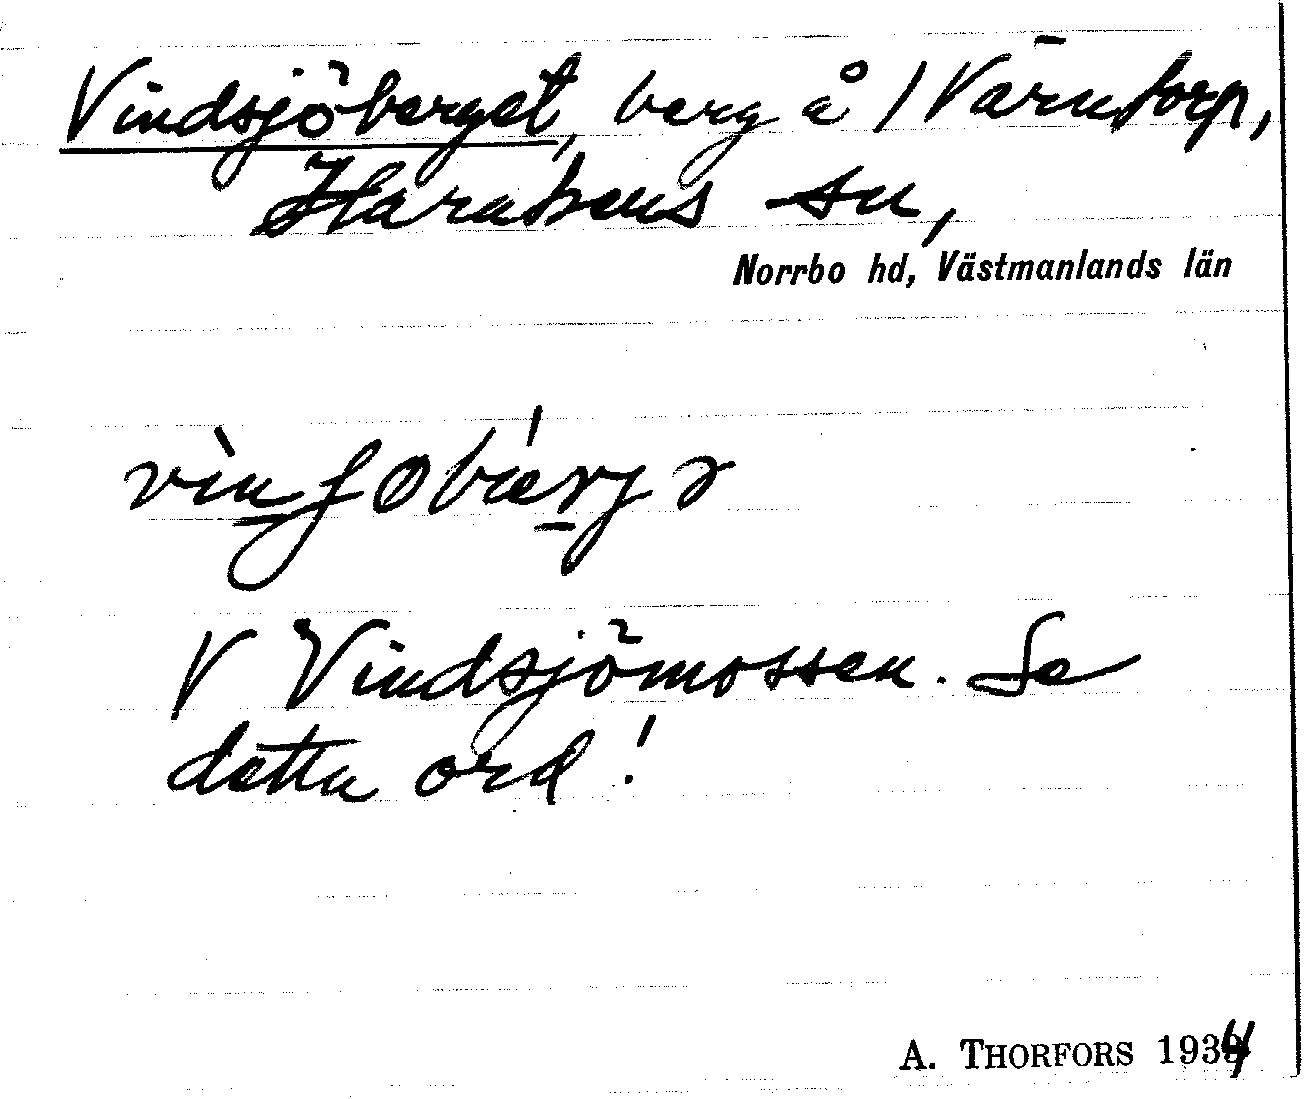 Vindsjöberget, berg å / Värntorp,
Harakers sn,
Norrbo hd, Västmanlands län
V Vindsjömossen. Se
detta ord!
A. THORFORS 1934